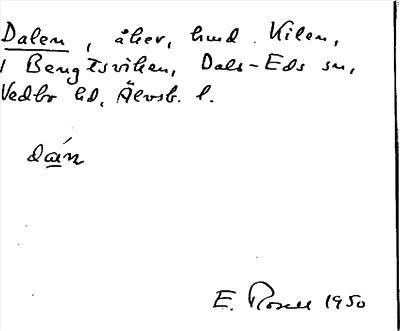 Dalen, åker, hmd Kilen,
i Bengtsviken, Dals-Eds sn,
Vedbo hd, Älvsb. l.
dán
E. Rosell 1950